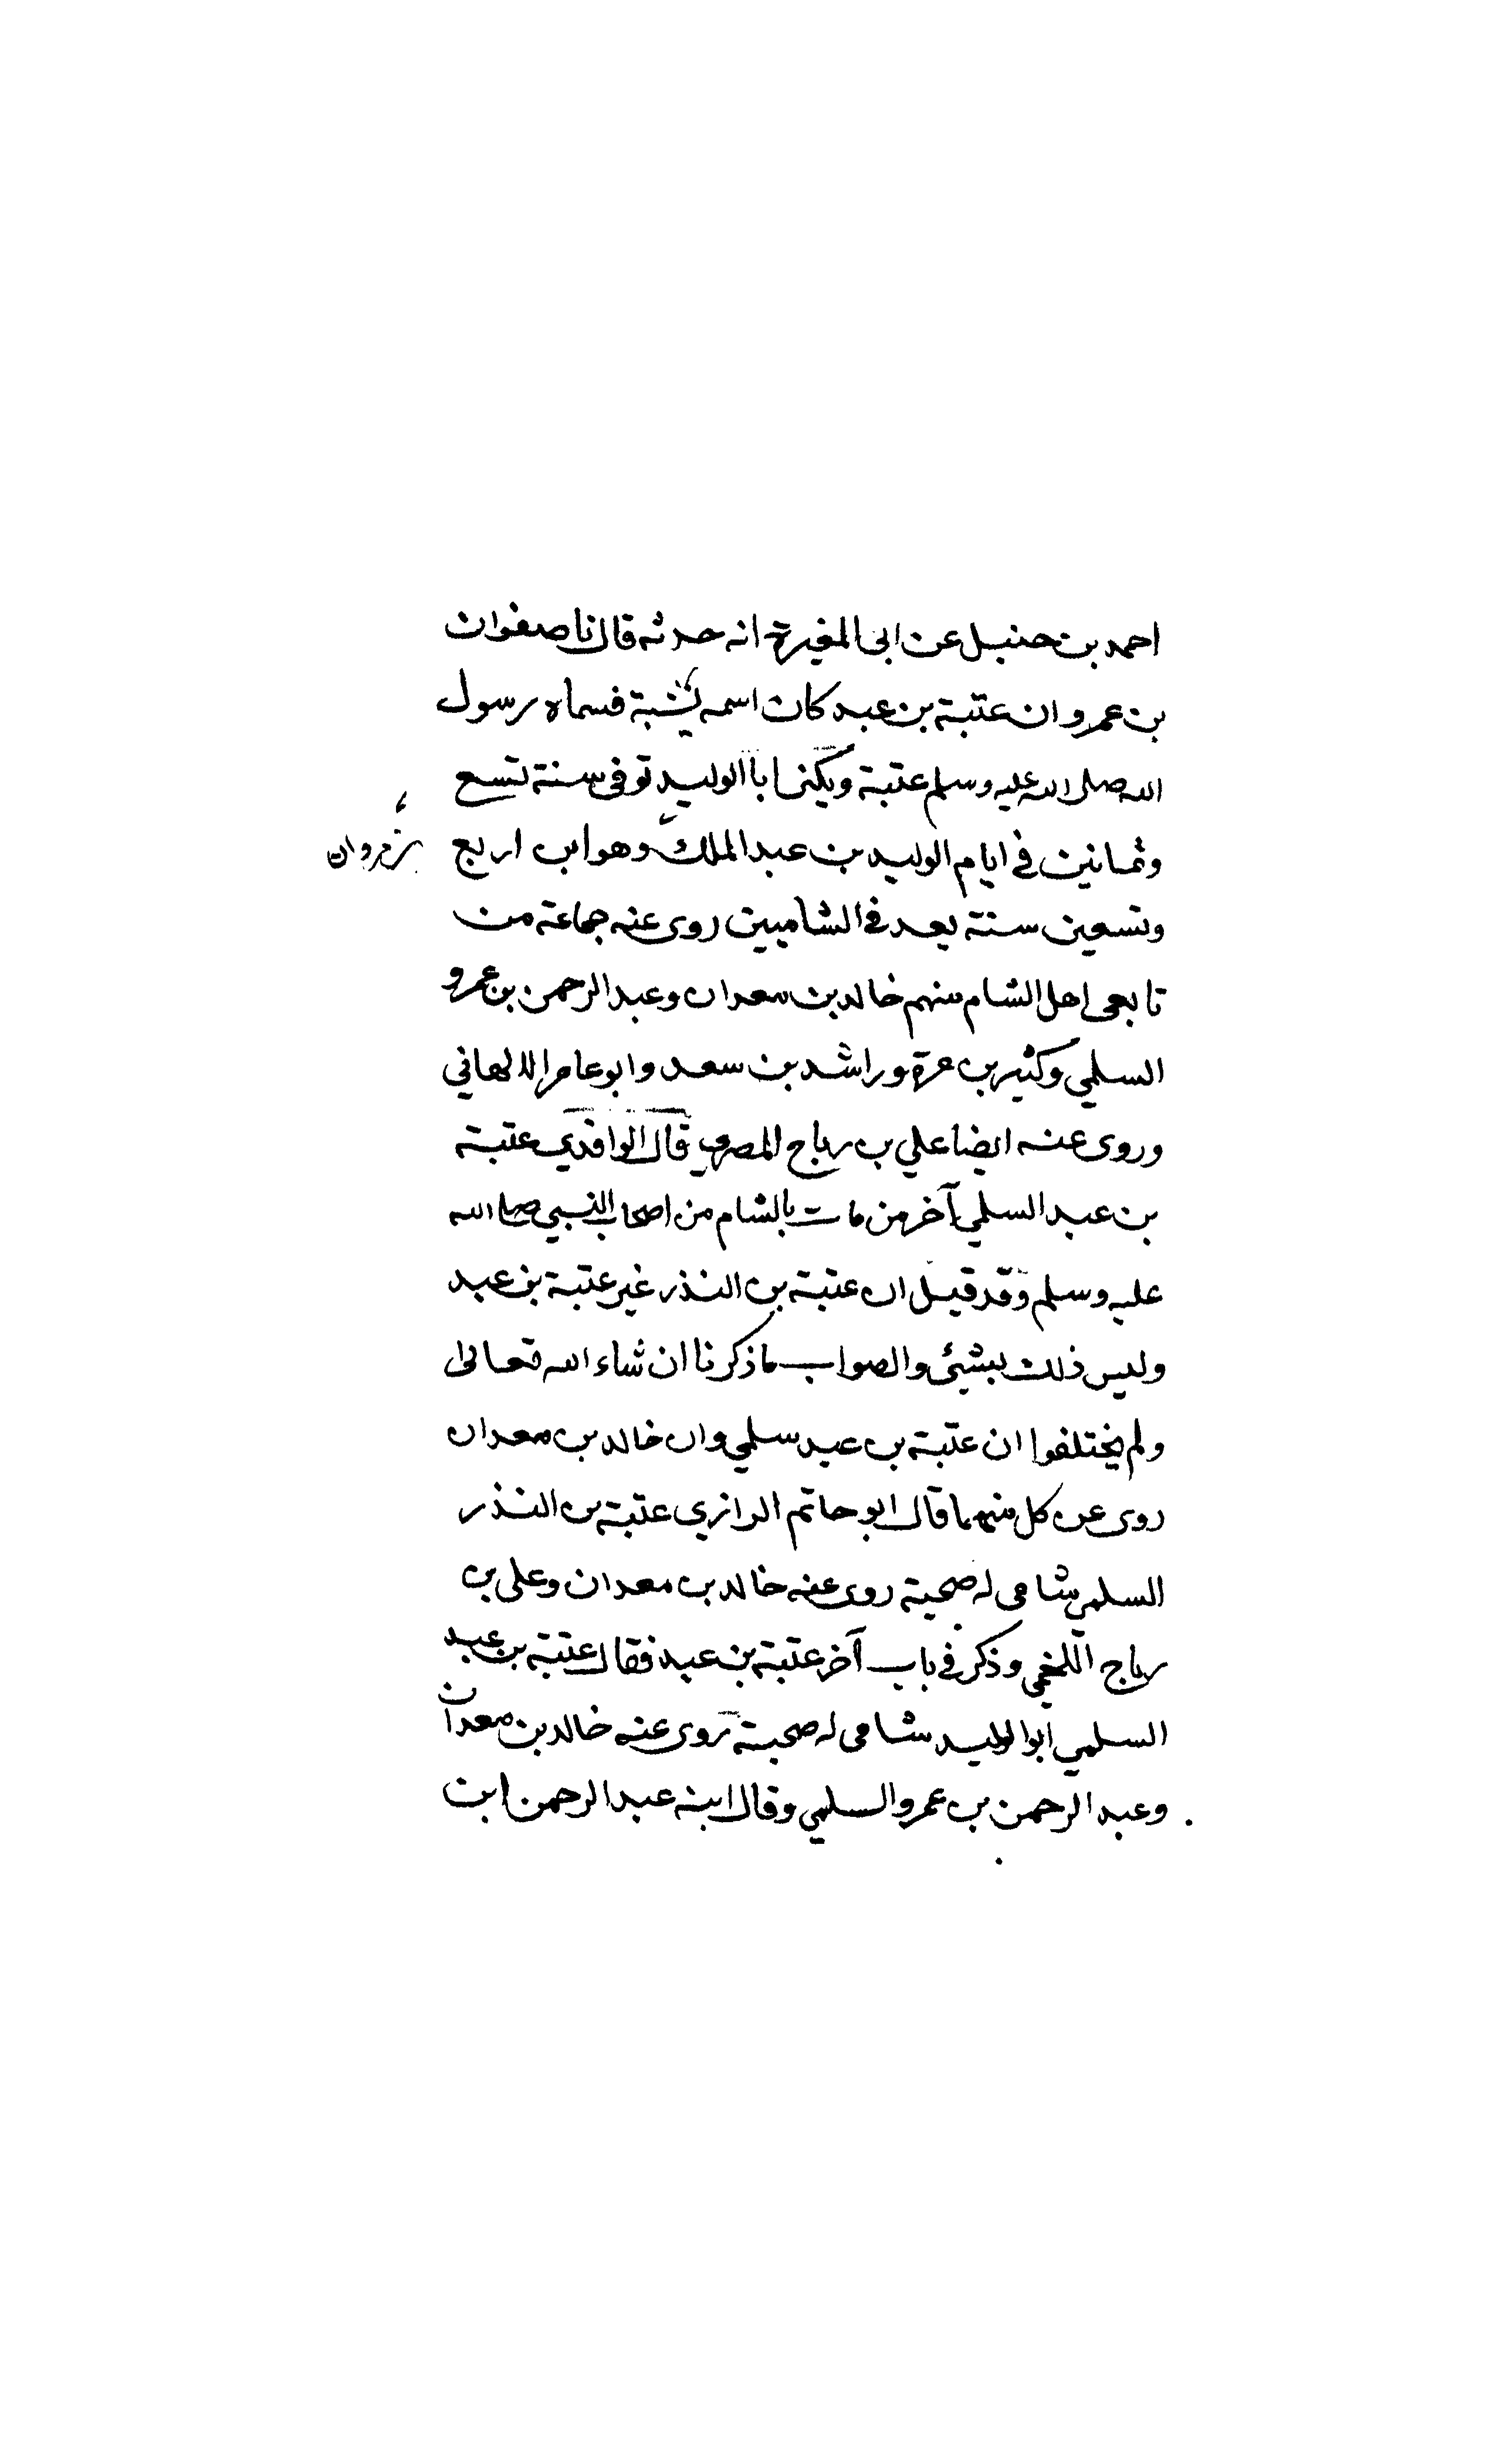 احمد بن حنبل عن ابى المغيرة انه حدثه قال نا صفوان
بن عمرو ان عتبة بن عبد كان اسمه نشبة فسماه رسول
الله صلى الله عليه وسلم عتبة ويكنى ابا الوليد توفى سنة تسع
وثمانين في ايام الوليد بن عبد الملك وهو ابن اربع
بن مروان
وتسعين سنة يعد في الشاميين روى عنه جماعة من
تابعى اهل الشام منهم خالد بن معدان وعبد الرحمن بن عمرو
السلمي وكثير بن مرة وراشد بن سعد وابو عامر الالهاني
وروى عنه ايضا علي بن رباح المصري قال الواقدي عتبة
بن عبد السلمي آخر من مات بالشام من اصحاب النبي صلى الله
عليه وسلم وقد قيل ان عتبة بن الندر غير عتبة بن عبد
وليس ذلك بشيئ والصواب ما ذكرنا ان شاء الله تعالى
ولم يختلفوا ان عتبة بن عبد سلمي وان خالد بن معدان
روى عن كل منهما قال ابو حاتم الرازي عتبة بن النذر
السلمي شامى له صحبة روى عنه خالد بن معدان وعلى بن
رباح اللخمي وذكر في باب آخر عتبة بن عبد فقال عتبة بن عبد
السلمي ابو الوليد شامى له صحبة روى عنه خالد بن معدان
وعبد الرحمن بن عمرو السلمي وقال ابنه عبد الرحمن ابن